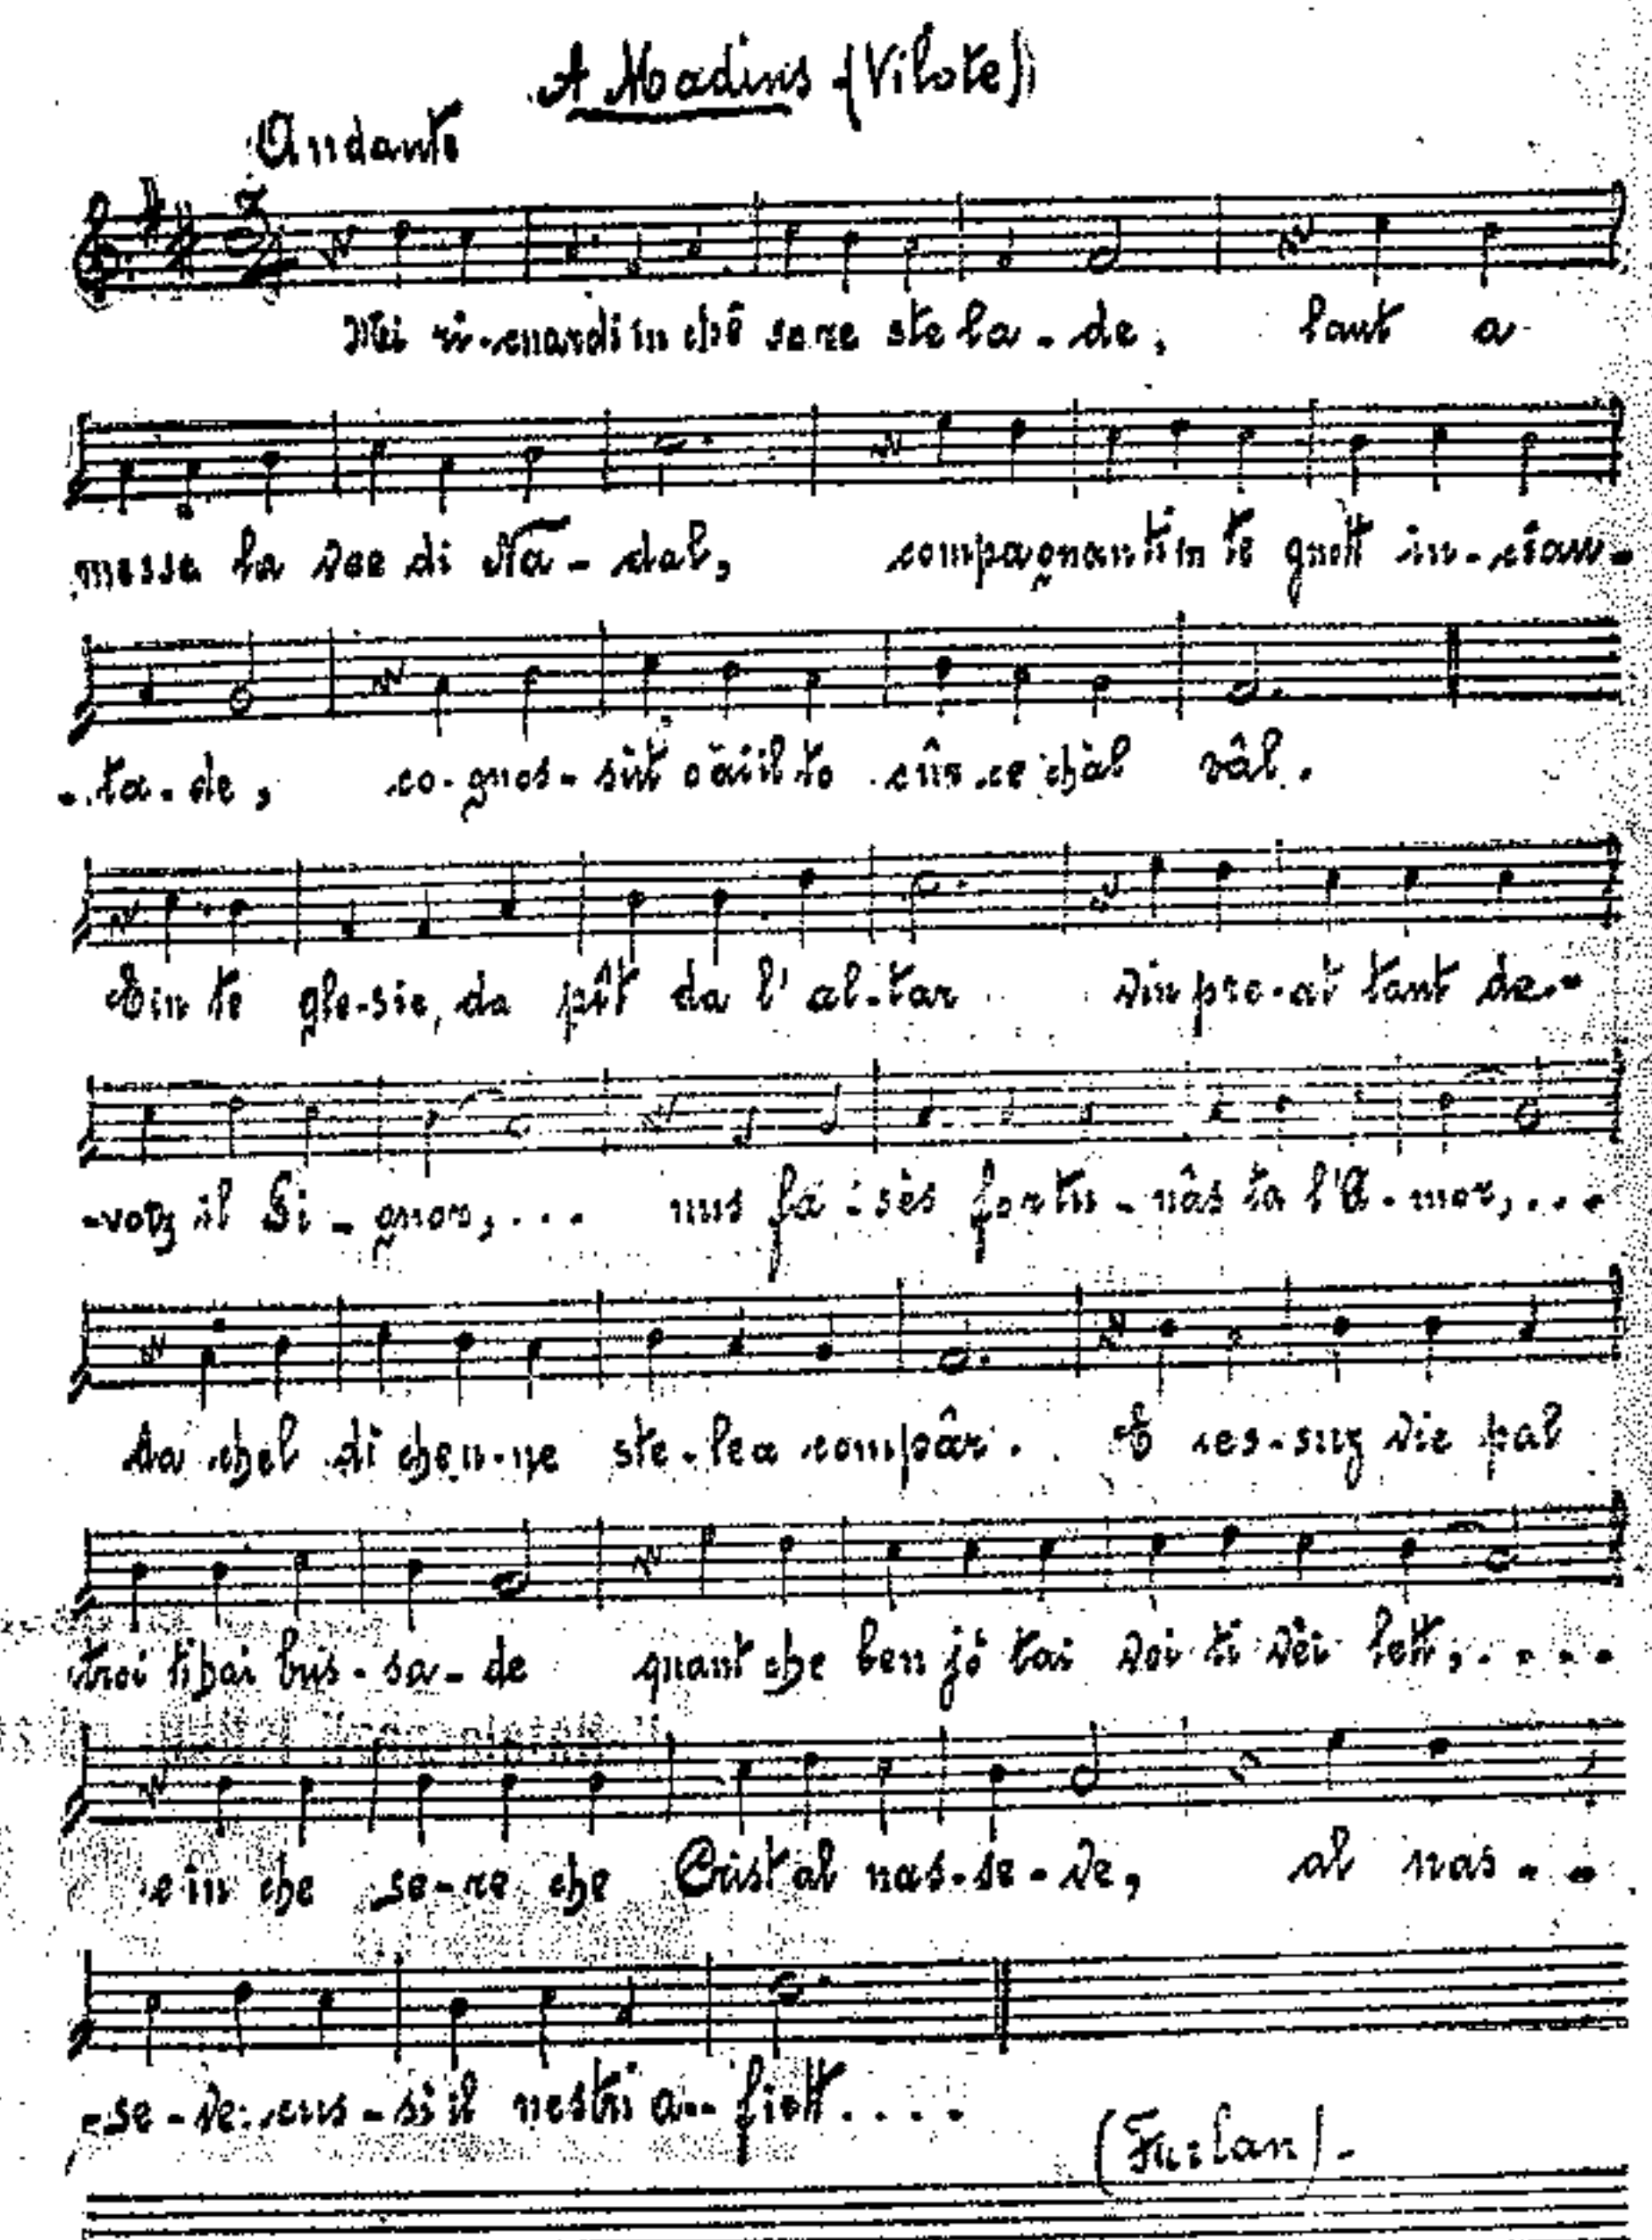 A Madins (Vilote)
Andante
3/4
Mi ri-cuardi in chê sere ste la-de, lant a
messe la vee di Na-dal,
compagnant in te gnott in-cian-
-ta-de, co-gnos-sût o ài il to cûr ce ch'al vâl.
Din te gle-sie, da pît da l'al-tar vin pre-at tant de-
-votz il Si-gnor, ... nus fa-sès fortu-nâs ta l'A-mor, ...
Da chel di chen-ne ste-le a compâr. E ces-sug vie pal
troi ti hai bus-sa-de quant che ben jò tai voi ti vêi lett, ....
e in che se-re che Crist al nas-se-ve, al nas-
-se-ve cus-sì il nestri a-fiett....
(Furlan)-